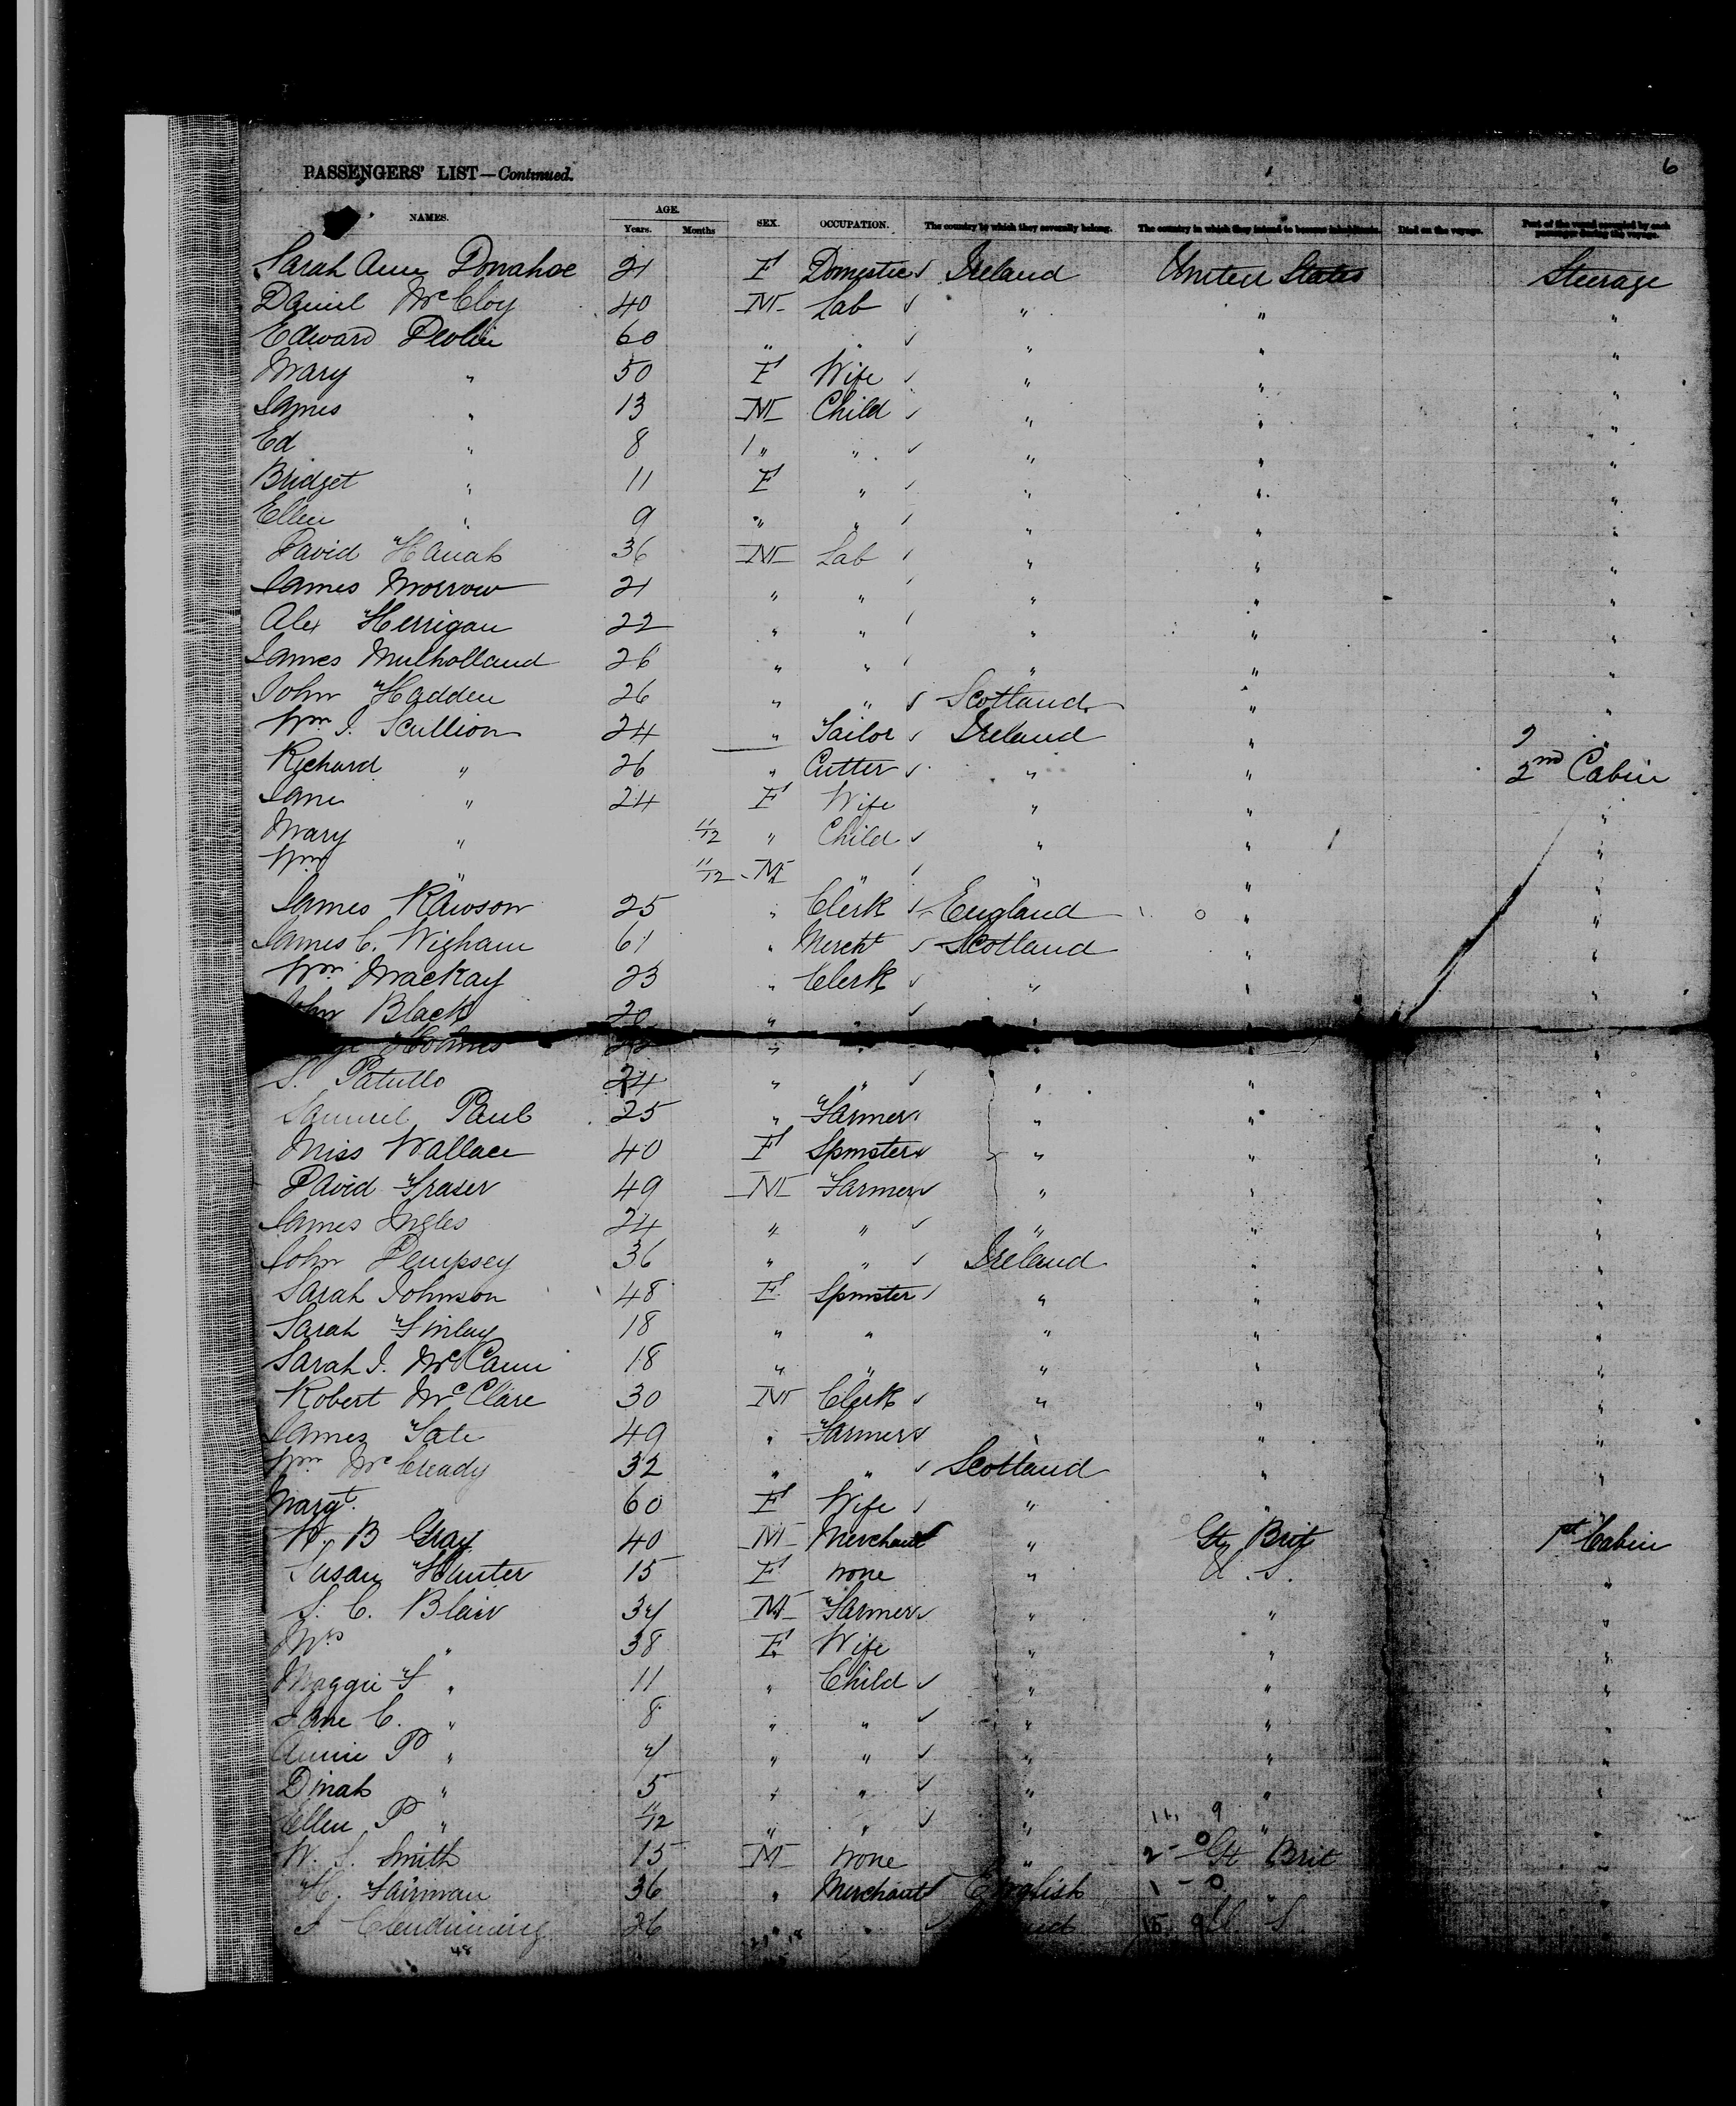 6
PASSENGERS' LIST—Continued.
NAMES. AGE. Years. Months SEX. OCCUPATION. The country to which they severally belong. The country in which they intend to become inhabitants. Died on the voyage. Part of the vessel occupied by each passenger during the voyage.
Sarah Ann Donahoe 21 F Domestic ✓ Ireland United States Steerage
Daniel McCloy 40 M Lab ✓ " " "
Edward Devlin 60 " " ✓ " " "
Mary " 50 F Wife ✓ " " "
James " 13 M Child ✓ " " "
Ed " 8 " " ✓ " " "
Bridget " 11 F " ✓ " " "
Ellen " 9 " " ✓ " " "
David Hanah 36 M Lab ✓ " " "
James Morrow 21 " " ✓ " " "
Alex Herrigan 22 " " ✓ " " "
James Mulholland 26 " " ✓ " " "
John Hadden 26 " " ✓ Scotland " "
Wm J. Scullion 24 " Tailor ✓ Ireland " "
Richard " 26 " Cutter ✓ " " 2nd Cabin
Jane " 24 F Wife " " "
Mary " 11/12 " Child ✓ " " "
Wm " 11/12 M " ✓ " " "
James Rawson 25 " Clerk ✓ England " "
James C. Wigham 61 " Mercht ✓ Scotland " "
Wm Mackay 23 " Clerk ✓ " " "
John Black 20 " " ✓ " " "
Holmes " " " " "
S. Patullo 24 " " ✓ " " "
Samuel Paul 25 " Farmer " " "
Miss Wallace 40 F Spinster ✓ " " "
David Fraser 49 M Farmer ✓ " " "
James Ingles 24 " " ✓ " " "
John Dempsey 36 " " ✓ Ireland " "
Sarah Johnson 48 F Spinster ✓ " " "
Sarah Finlay 18 " " " " "
Sarah J. McCann 18 " " " " "
Robert McClare 30 M Clerk ✓ " " "
James Tate 49 " Farmer ✓ " " "
Wm McCready 32 " " ✓ Scotland " "
Margt. 60 F Wife ✓ " " "
W. B Gray 40 M Merchant ✓ " Gt Brit 1st Cabin
Susan Hunter 15 F none " U. S. "
S. C. Blair 34 M Farmer ✓ " " "
Mrs " 38 F Wife " " "
Maggie F " 11 " Child ✓ " " "
Jane C. " 8 " " ✓ " " "
Annie P " 7 " " ✓ " " "
Dinah " 5 " " ✓ " " "
Ellen P " 11/12 " " ✓ " " "
W. S. Smith 15 M none " Gt Brit "
H. Fairman 36 " Merchant ✓ English " "
Clendinning 26 " " ✓ U. S. "
48